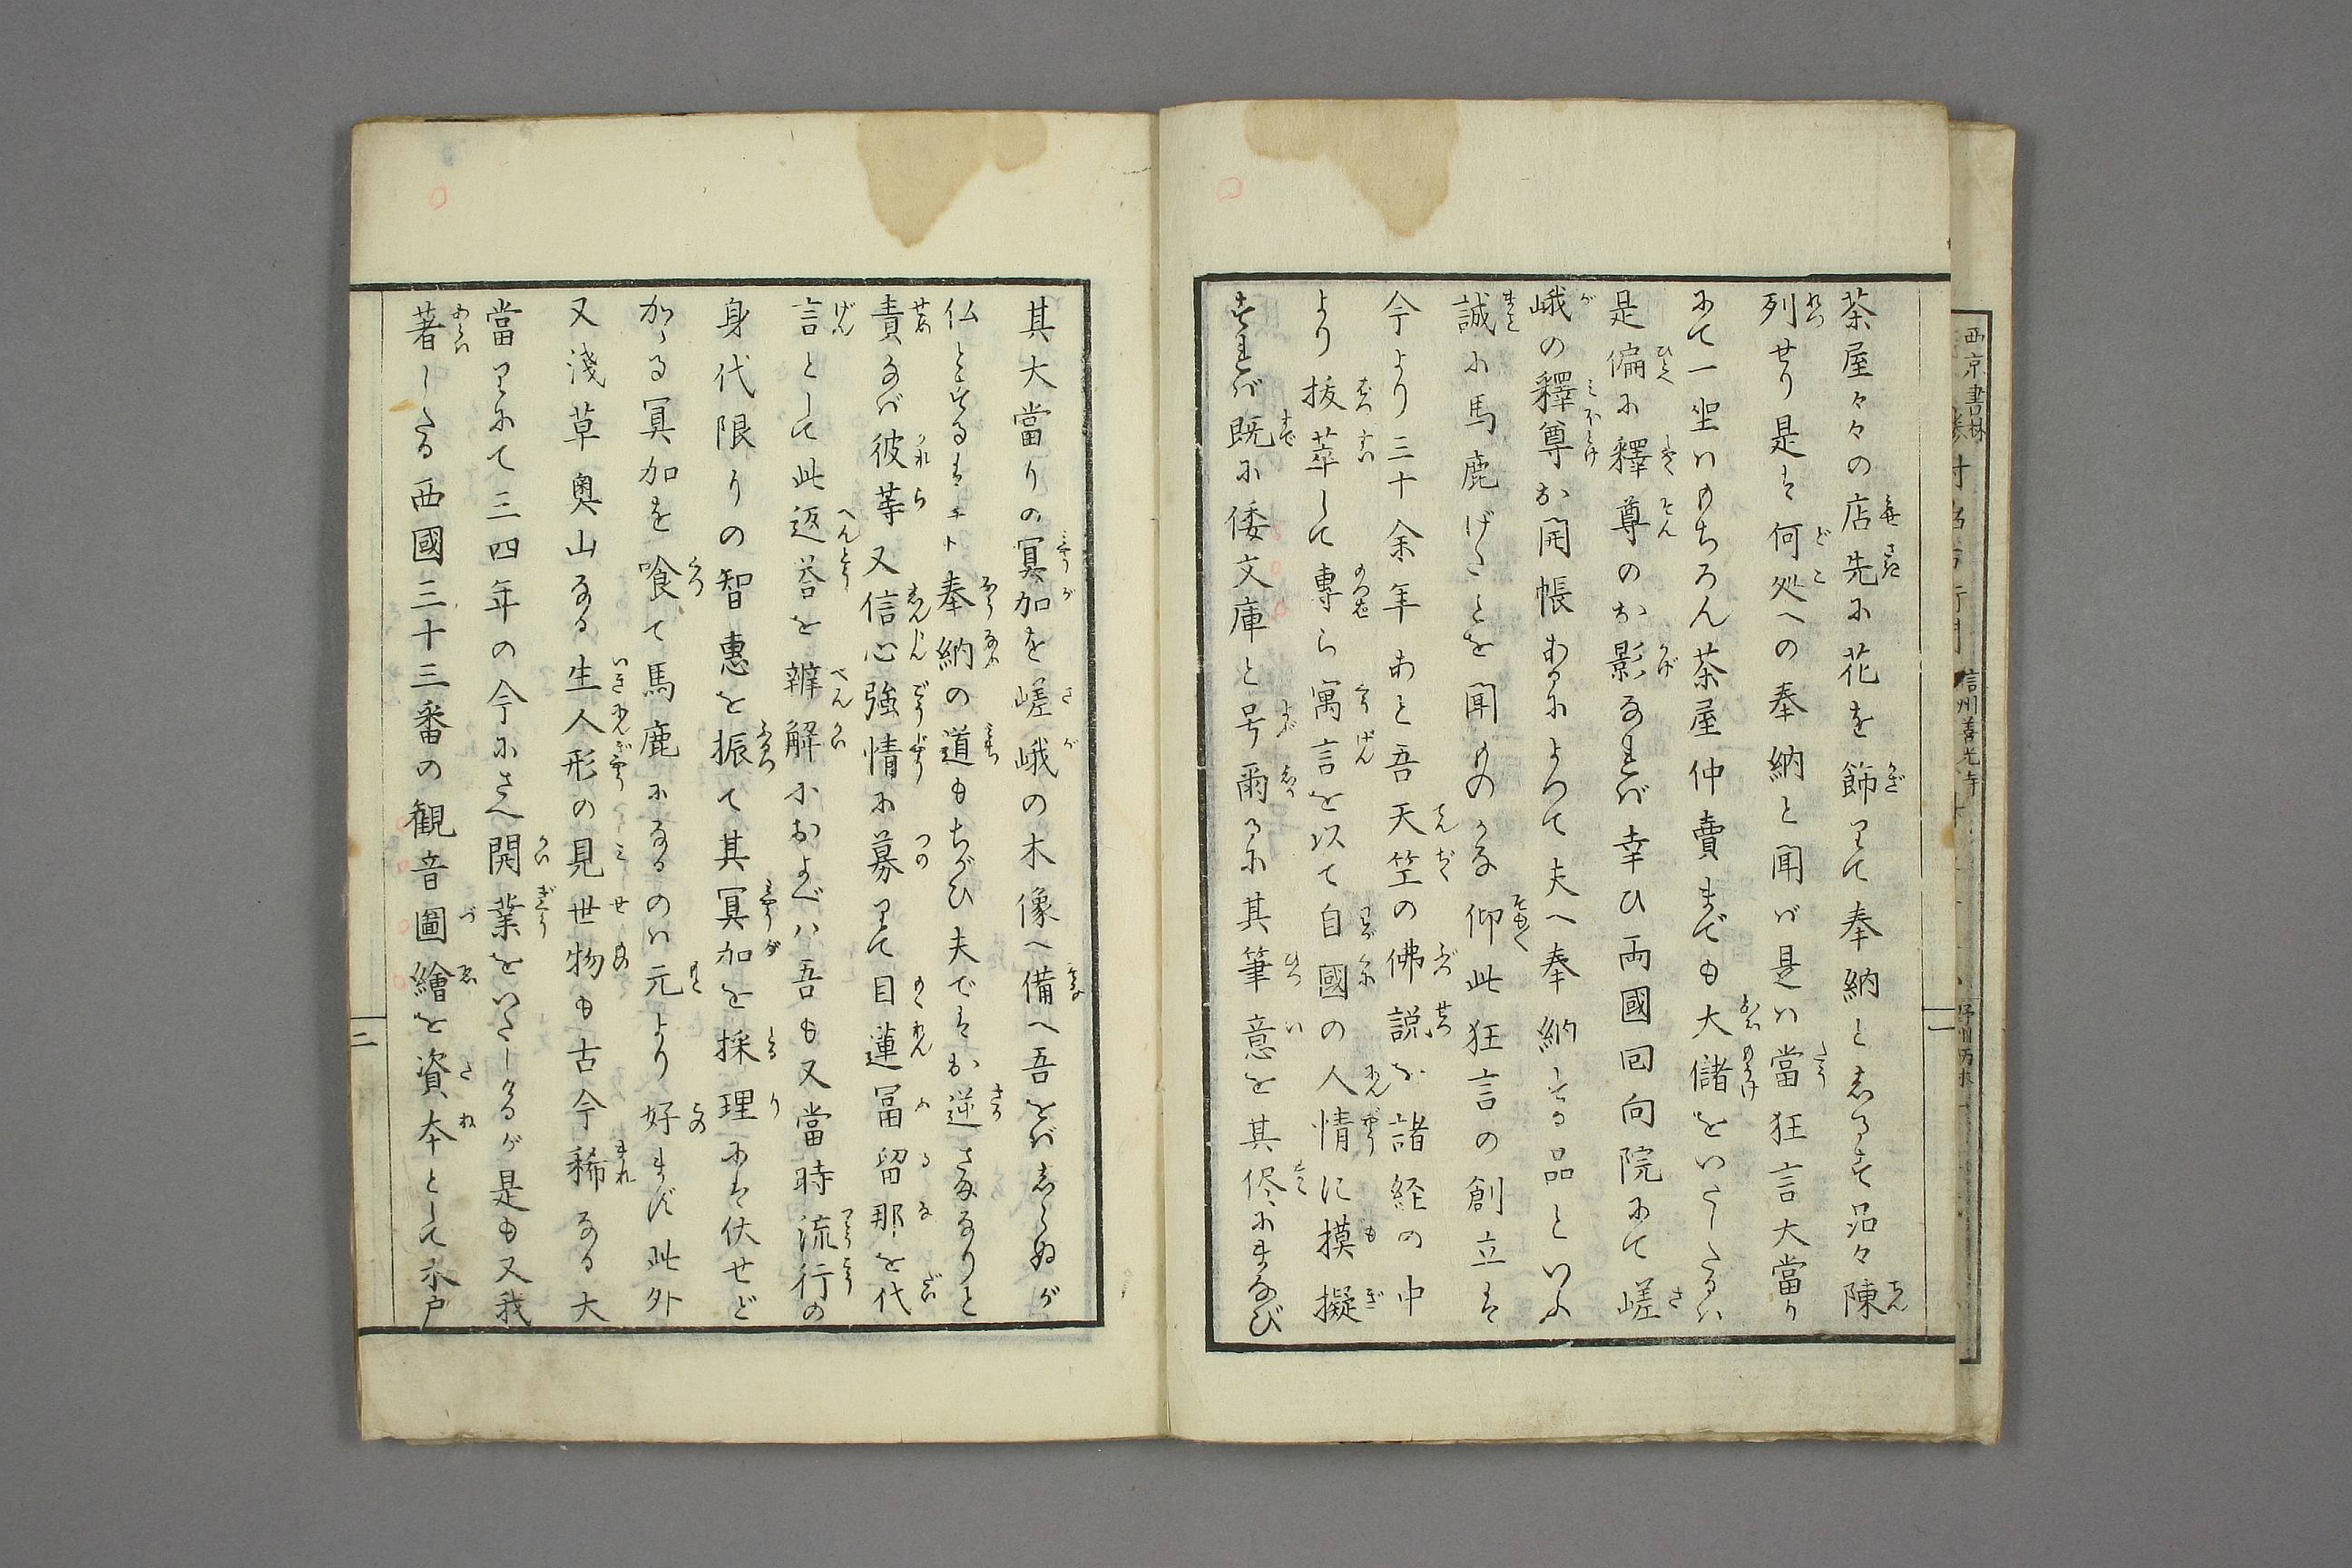 茶屋々々の店先に花を飾りて奉納と志るせ品々陳
列せり是は何処への奉納と聞ば是ハ當狂言大當り
にて一坐ハもちろん茶屋仲賣までも大儲をいたしたるハ
是偏に釋尊のお影なれば幸ひ両國回向院にて嵯
峨の釋尊お開帳あるによつて夫へ奉納する品といふ
誠に馬鹿げたことを聞ものかな仰此狂言の創立は
今より三十余年あと吾天竺の佛説や諸経の中
より抜萃して専ら寓言を以て自國の人情に摸擬
すれば既に倭文庫と号爾るに其筆意を其侭にまなび
其大當りの冥加を嵯峨の木像へ備へ吾をばしらぬが
仏とするはチト奉納の道もちがひ夫ではお逆さなりと
責なば彼等又信心強情に募りて目蓮冨留那を代
言として此返答を辨解におよべハ吾も又當時流行の
身代限りの智惠を振て其冥加を採理には伏せど
かゝる冥加を喰て馬鹿になるのハ元より好まず此外
又淺草奥山なる生人形の見世物も古今稀なる大
當りにて三四年の今にさへ開業をいたしけるが是も又我
著したる西國三十三番の観音圖繪を資本として水戸
二
西京書林
信州善光寺